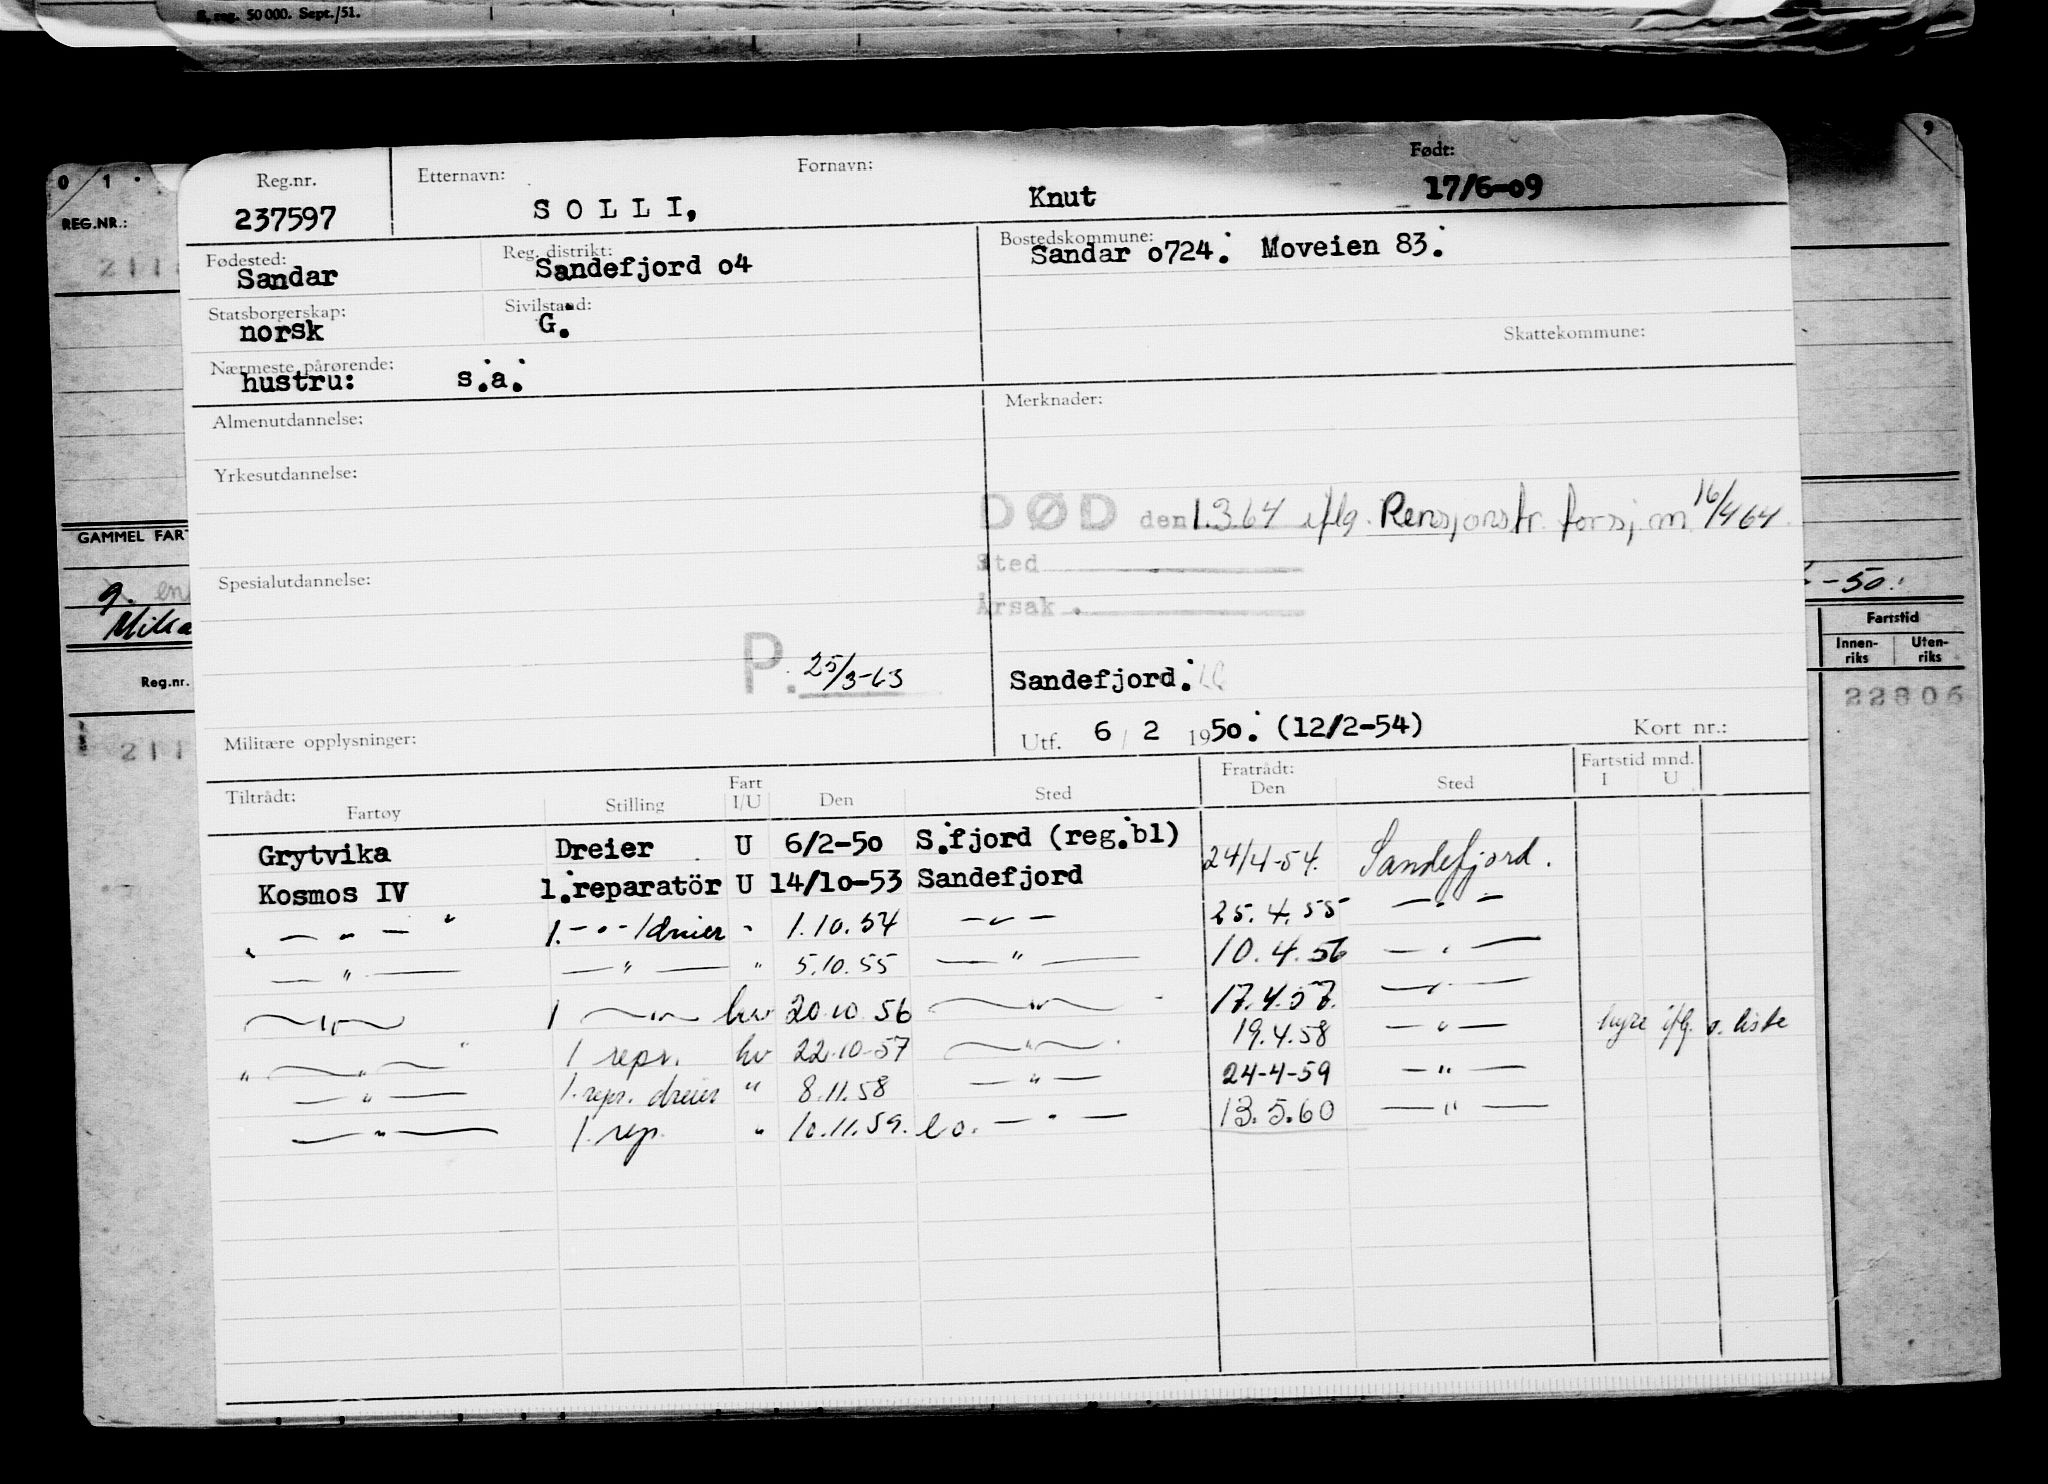 S. reg. 50 000. Sept./51.
0 1
REG.NR.:
GAMMEL FART
Reg.nr.
9
-50.
Fartstid
Innenriks Utenriks
22806
Reg.nr. Etternavn: Fornavn: Født:
237597 SOLLI, Knut 17/6-09
Fødested: Reg. distrikt: Bostedskommune:
Sandar Sandefjord o4 Sandar o724. Moveien 83.
Statsborgerskap: Sivilstand:
norsk G. Skattekommune:
Nærmeste pårørende:
hustru: s.a.
Almenutdannelse: Merknader:
Yrkesutdannelse:
DØD den 1.3.64 iflg. Pensjonstr. forsj. m. 16/4 64.
Sted
Spesialutdannelse:
Årsak
P. 25/3-63
Sandefjord.
Militære opplysninger: Utf. 6/2 1950. (12/2-54) Kort nr.:
Tiltrådt: Fart Fratrådt: Fartstid mnd.
Fartøy Stilling I/U Den Sted Den Sted I U
Grytvika Dreier U 6/2-50 S.fjord (reg.bl)
Kosmos IV 1.reparatör U 14/1o-53 Sandefjord 24/4-54. Sandefjord.
— " — 1. — " — /dreier " 1.10.54 — " — 25.4.55 — " —
— " — — " — " 5.10.55 — " — 10.4.56 — " —
— " — 1 — " — hv 20.10.56 — " — 17.4.57. — " —
— " — 1 repr. hv 22.10-57 — " — 19.4.58 — " — hyre iflg. o. liste
— " — 1. repr. dreier " 8.11.58 — " — 24-4-59 — " —
— " — 1. rep. " 10.11.59. — " — 13.5.60 — " —